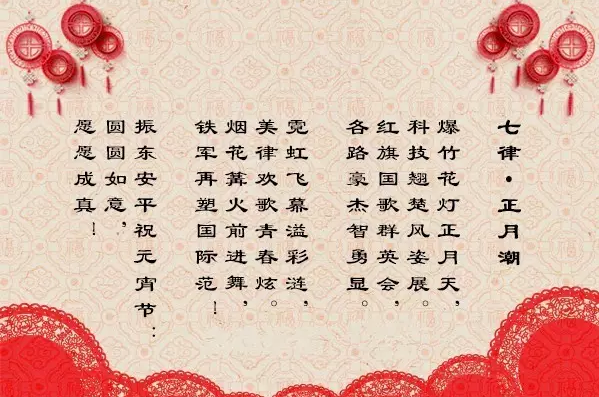 七律·正月潮
爆竹花灯正月天，
科技翘楚风姿展。
红旗国歌群英会，
各路豪杰智勇显。
霓虹飞幕溢彩涟，
美律欢歌青春炫。
烟花篝火前进舞，
铁军再塑国际范！
振东安平祝元宵节：
圆圆如意，
愿愿成真！